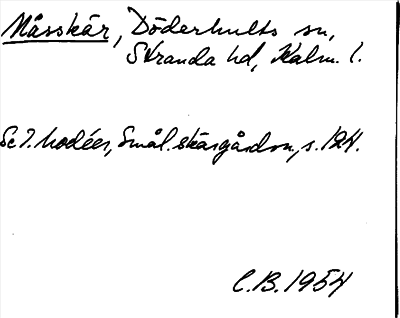 Måsskär, Döderhults sn,
Stranda hd, Kalm. l.
Se I. Modéer, Smål. skärgårdsn, s. 124.
C.B. 1954